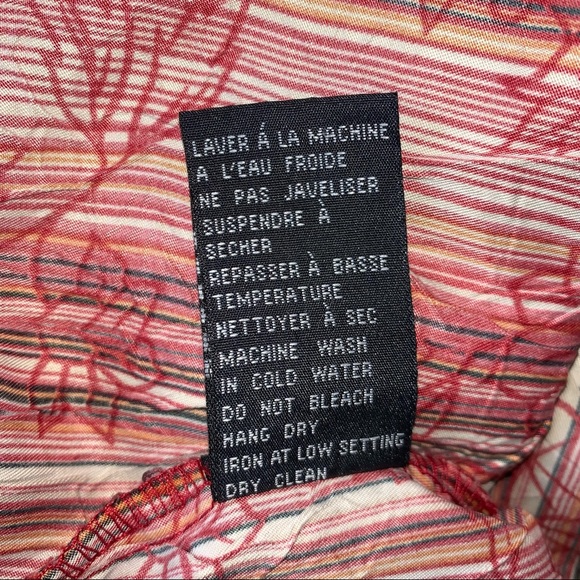 LAVER À LA MACHINE
A L'EAU FROIDE
NE PAS JAVELISER
SUSPENDRE À
SECHER
REPASSER À BASSE
TEMPERATURE
NETTOYER À SEC
MACHINE WASH
IN COLD WATER
DO NOT BLEACH
HANG DRY
IRON AT LOW SETTING
DRY CLEAN